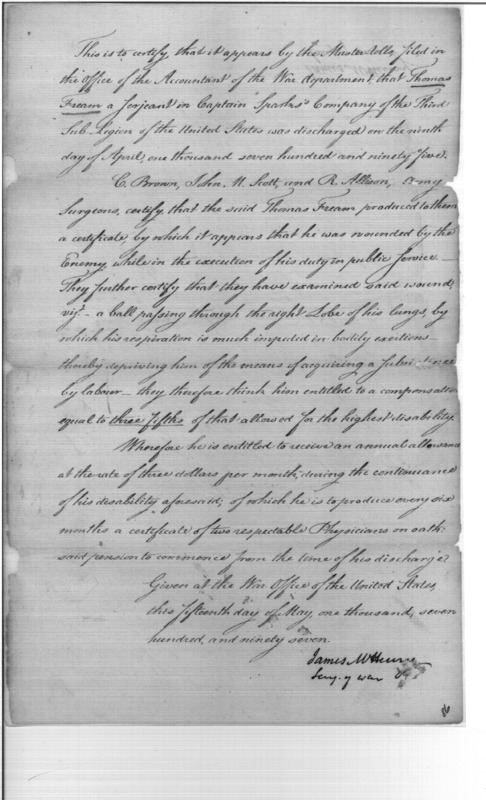 This is to certify that it appears by the Muster Rolls, filed in
the Office of the Accountant of the War department, that Thomas
Fream a Serjeant in Captain Sparks's Company of the Third
Sub-Legion of the United States was discharged on the ninth
day of April, one thousand seven hundred and ninety five.
C. Brown, John M. Scott, and R. Allison, Army
Surgeons, certify, that the said Thomas Fream produced to them
a certificate, by which it appears that he was wounded by the
Enemy while in the execution of his duty in public Service —
They further certify that they have examined said wound,
vizt. — a ball passing through the right Lobe of his lungs, by
which his respiration is much impeded in bodily exertions
thereby depriving him of the means of acquiring a
by labour — they therefore think him entitled to a compensation
equal to three fifths of that allowed for the highest disability.
Wherefore he is entitled to receive an annual allowance
at the rate of three dollars per month, during the continuance
of his disability aforesaid; of which he is to produce every six
months a certificate of two respectable Physicians on oath:
said pension to commence from the time of his discharge.
Given at the War Office of the United States,
this fifteenth day of May, one thousand, seven
hundred, and ninety seven.
James McHenry
Secy. of war